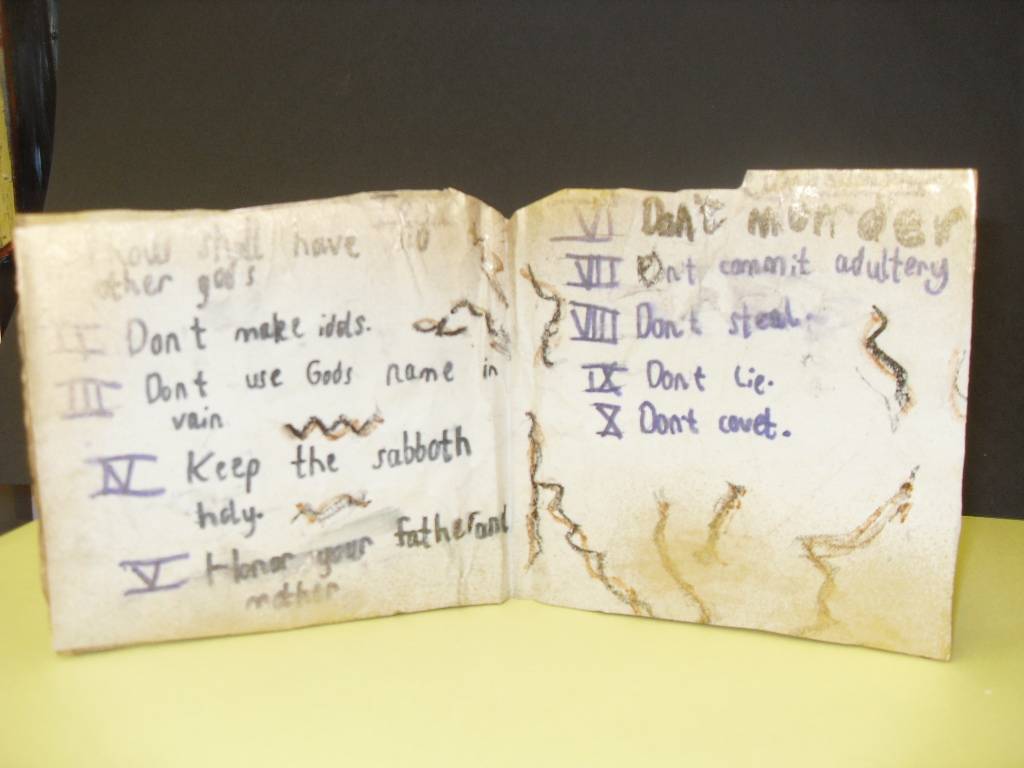 Thow shall have no
other gods
II Don't make idols.
III Don't use Gods name in
vain
IV Keep the sabboth
holy.
V Honor your father and
mother
VI Don't murder
VII Don't commit adultery
VIII Don't steal.
IX Don't Lie.
X Don't covet.